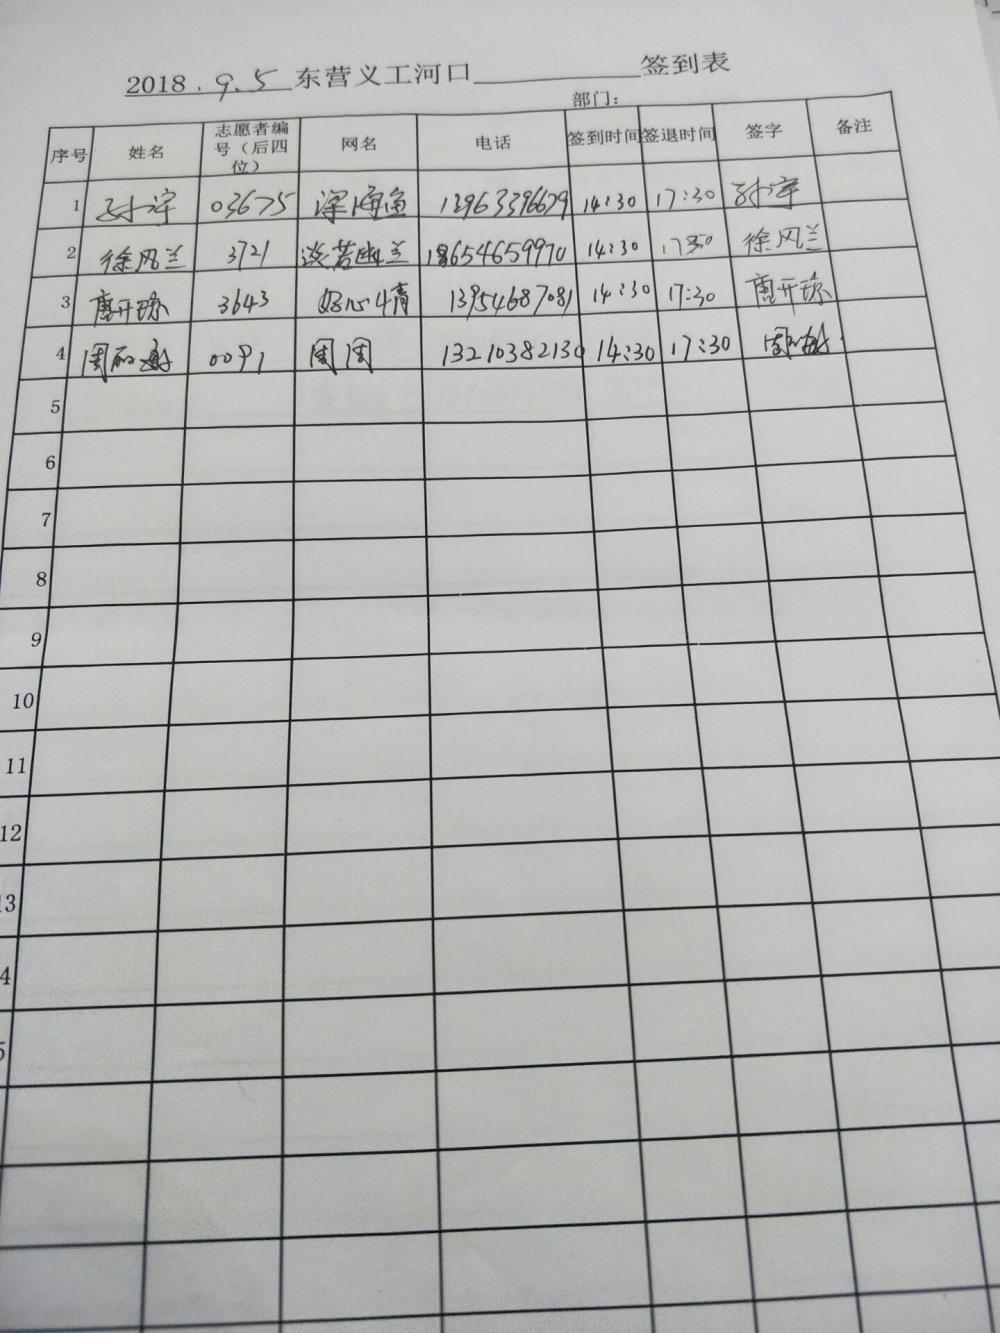 2018.9.5 东营义工河口 签到表
部门:
序号 姓名 志愿者编号(后四位) 网名 电话 签到时间 签退时间 签字 备注
1 孙宇 03675 深海鱼 13963396679 14:30 17:30 孙宇
2 徐风兰 3721 淡若幽兰 18654659970 14:30 17:30 徐风兰
3 唐开琼 3643 好心情 13954687081 14:30 17:30 唐开琼
4 周 0091 周周 13210382130 14:30 17:30 周
5
6
7
8
9
10
11
12
13
4
5